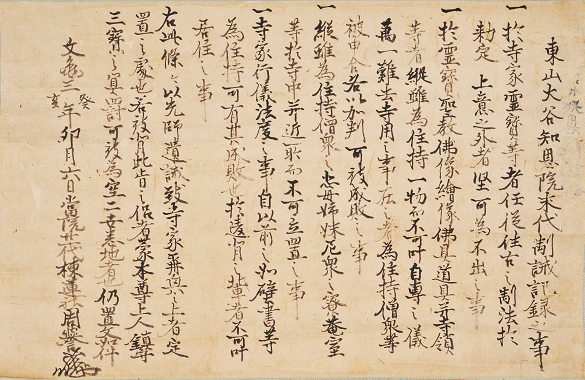 東山大谷知恩院末代制誡記録之事
一於寺家霊寳等者任従往古之制法於
勅定上意之外者堅可為不出之事
一於霊寳聖教佛像繪像佛具道具并寺領
等者縦雖為住持一物而不可叶自専之儀
萬一難去寺用之事在之者為住持僧衆等
被申合各以加判可被成敗之事
一縦雖為住持僧衆之悲母姉妹尼衆之家菴室
等於寺中并近所而不可立置之事
一寺家行儀法度之事自以前之如壁書等
為住持可有其成敗也於違背之輩者不可叶
居住之事
右此條々以先師遺誡致寺家再興之上者定
置之處也若致背此旨之信者蒙本尊上人鎮守
三寳之冥罰可被為空二世悉地者也仍置文如件
文亀三年癸亥卯月六日當院廿代棟蓮社周譽